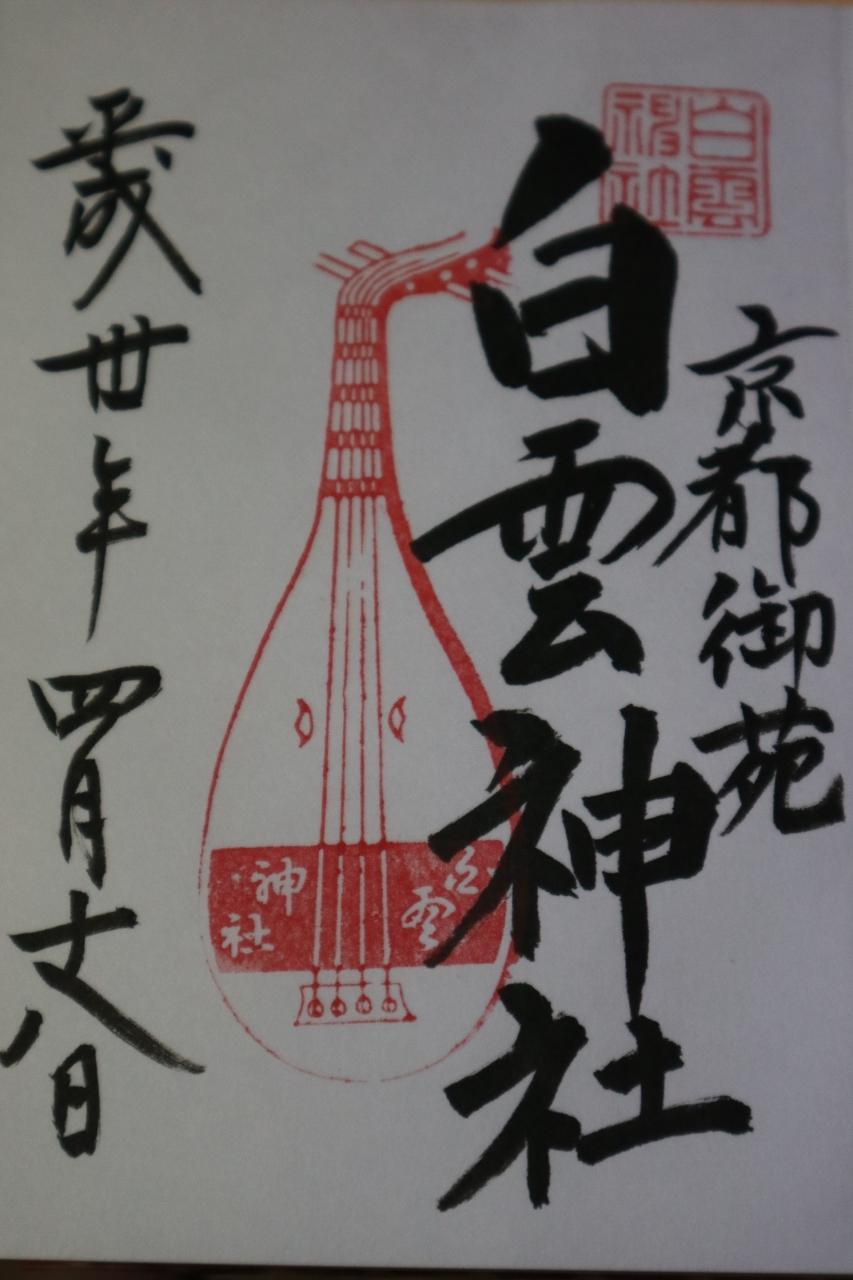 白雲神社
京都御苑
白雲神社
白雲
神社
平成丗年四月十八日